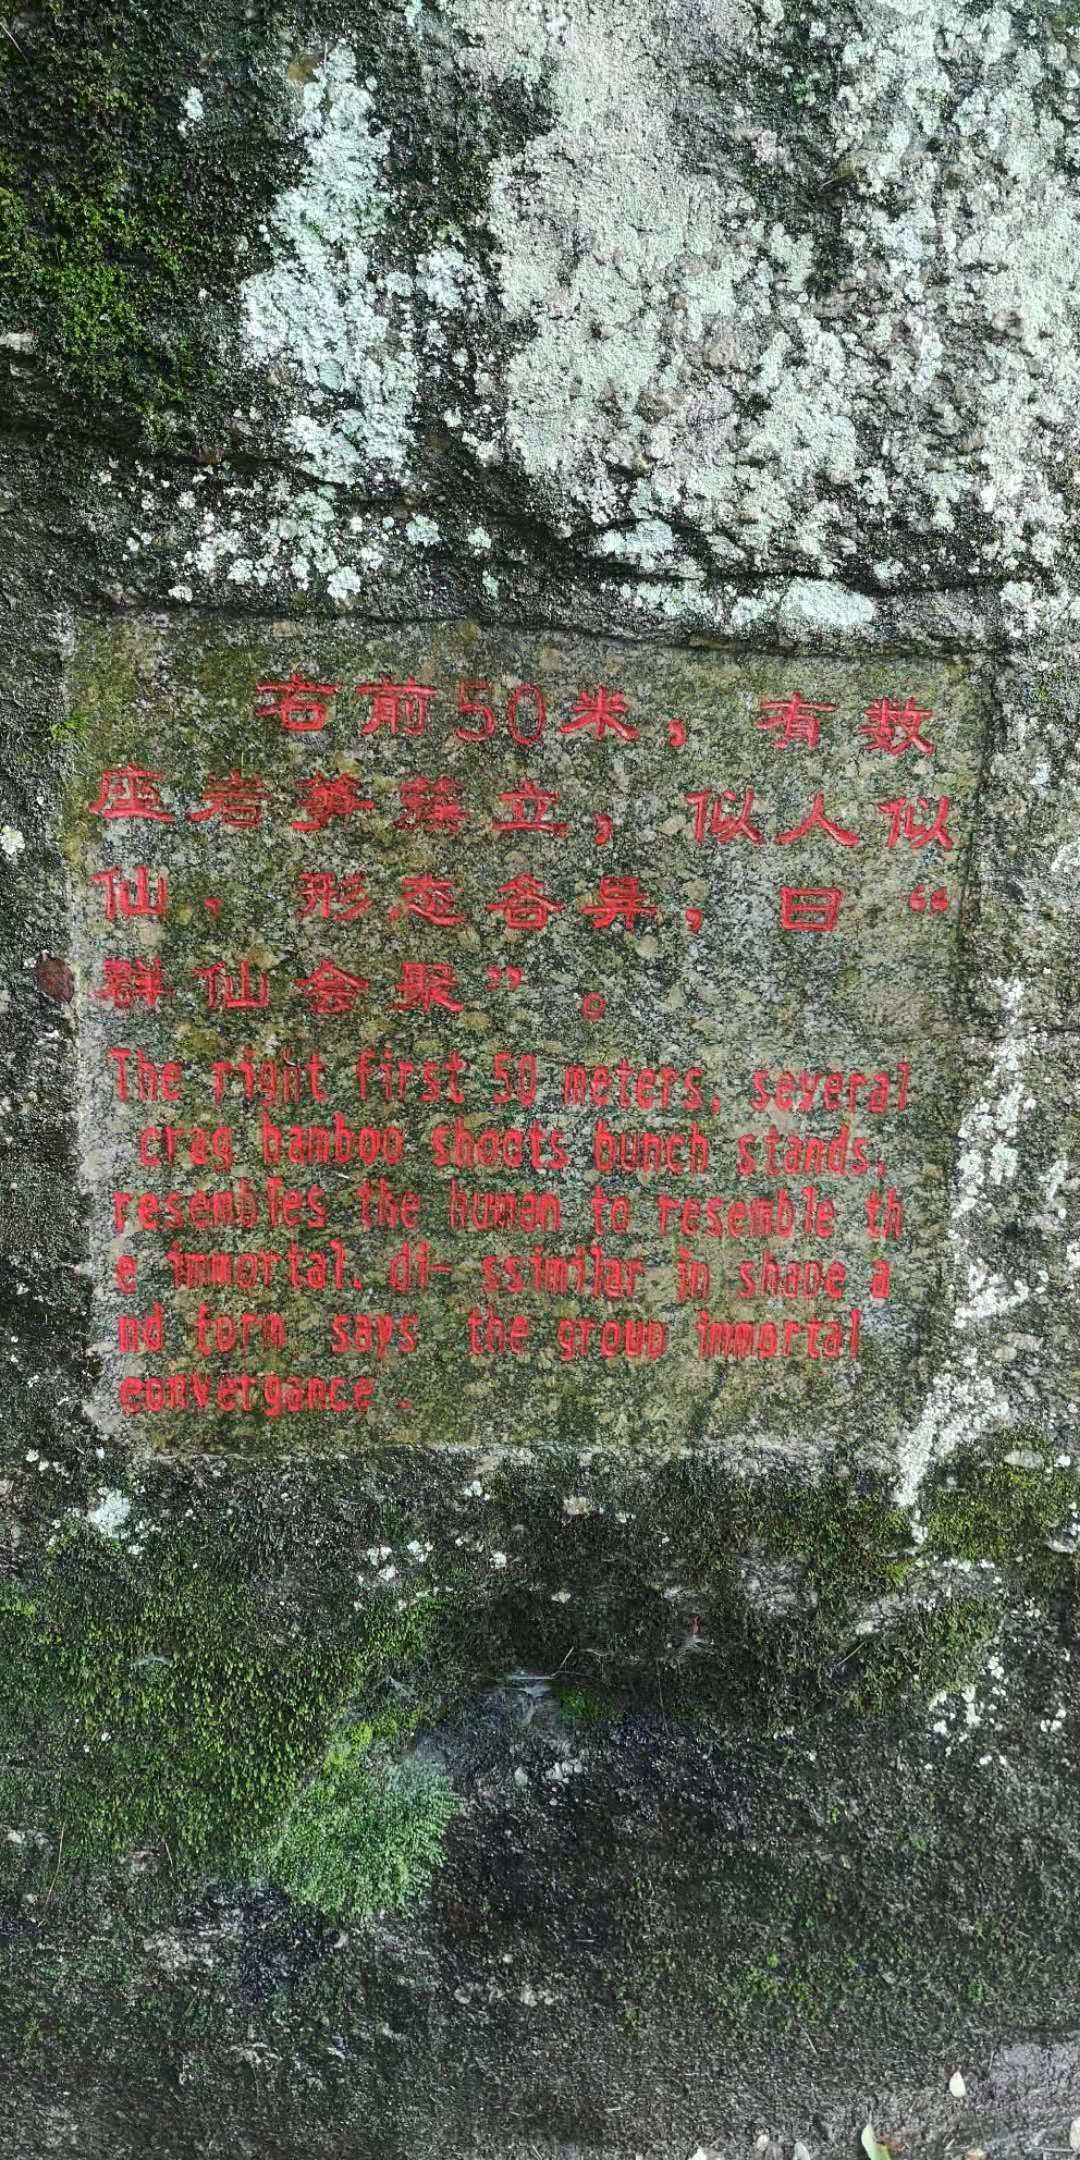 右前50米，有数
座岩笋蔟立，似人似
仙，形态各异，曰“
群仙会聚”。
The right first 50 meters, several
crag bamboo shoots bunch stands,
resembles the human to resemble th
e immortal. di- ssimilar in shape a
nd form says the group immortal
convergance.